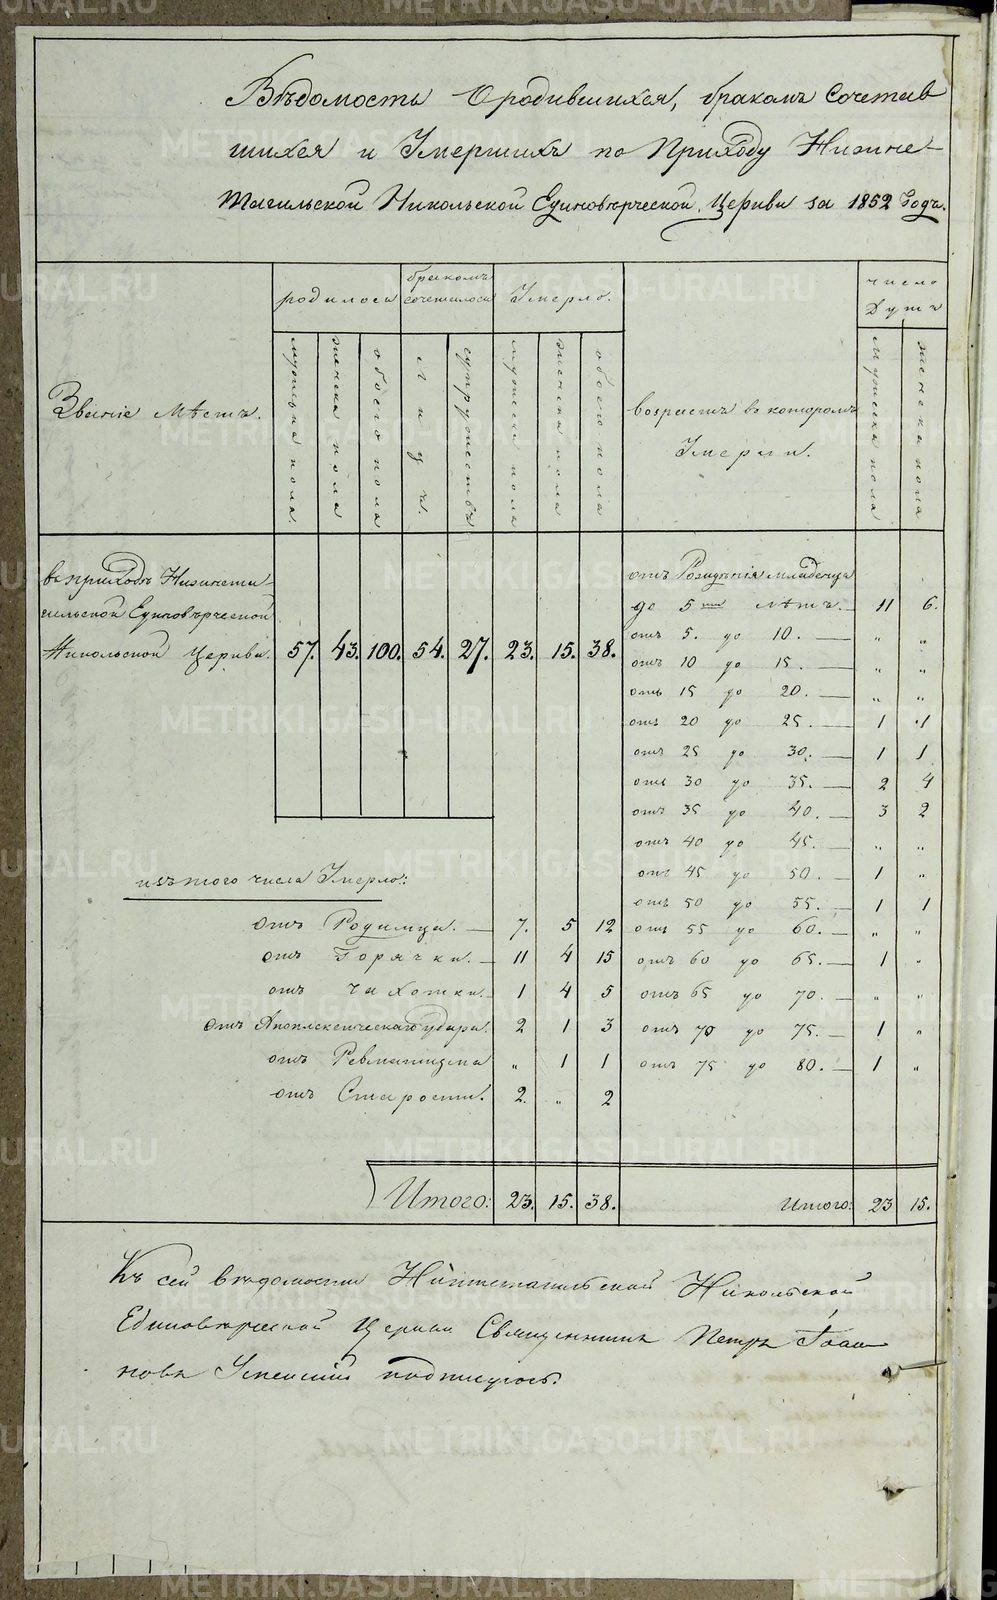 Вѣдомость о родившихся, бракомъ сочетав
шихся и Умершихъ по Приходу Нижне-
тагильской Никольской Единовѣрческой Церкви за 1852 Годъ.
Званіе Мѣстъ.
родилось
бракомъ сочеталось
Умерло.
возрастъ въ которомъ
Умерли.
число
Душъ
мужеска пола.
женска пола
обоего пола
Лицъ.
супружествъ
мужеска пола
женска пола
обоего пола
мужеска пола
женска пола
въ приходѣ Нижнета-
гильской Единовѣрческой
Никольской Церкви. 57. 43. 100. 54. 27. 23. 15. 38.
отъ Рожденія младенца
до 5ти лѣтъ. 11 6.
отъ 5. до 10. „ „
отъ 10 до 15. „ „
отъ 15 до 20. „ „
отъ 20 до 25. 1 1
отъ 25 до 30. 1 1
отъ 30 до 35. 2 4
отъ 35 до 40. 3 2
отъ 40 до 45. „ „
отъ 45 до 50. 1 „
отъ 50 до 55. 1 1
отъ 55 до 60. „ „
отъ 60 до 65. 1 „
отъ 65 до 70. „ „
отъ 70 до 75. 1 „
отъ 75 до 80. 1 „
изъ того числа Умерло:
отъ Родимца. 7. 5 12
отъ Горячки. 11 4 15
отъ чахотки. 1 4 5
отъ Апоплексическаго удара. 2 1 3
отъ Ревматизма „ 1 1
отъ Старости. 2. „ 2
Итого: 23. 15. 38.
Итого: 23 15.
Къ сей вѣдомости Нижнетагильской Никольской
Единоверческой Церкви Священникъ Петръ Іоан
новъ подписуюсь.
METRIKI.GASO-URAL.RU